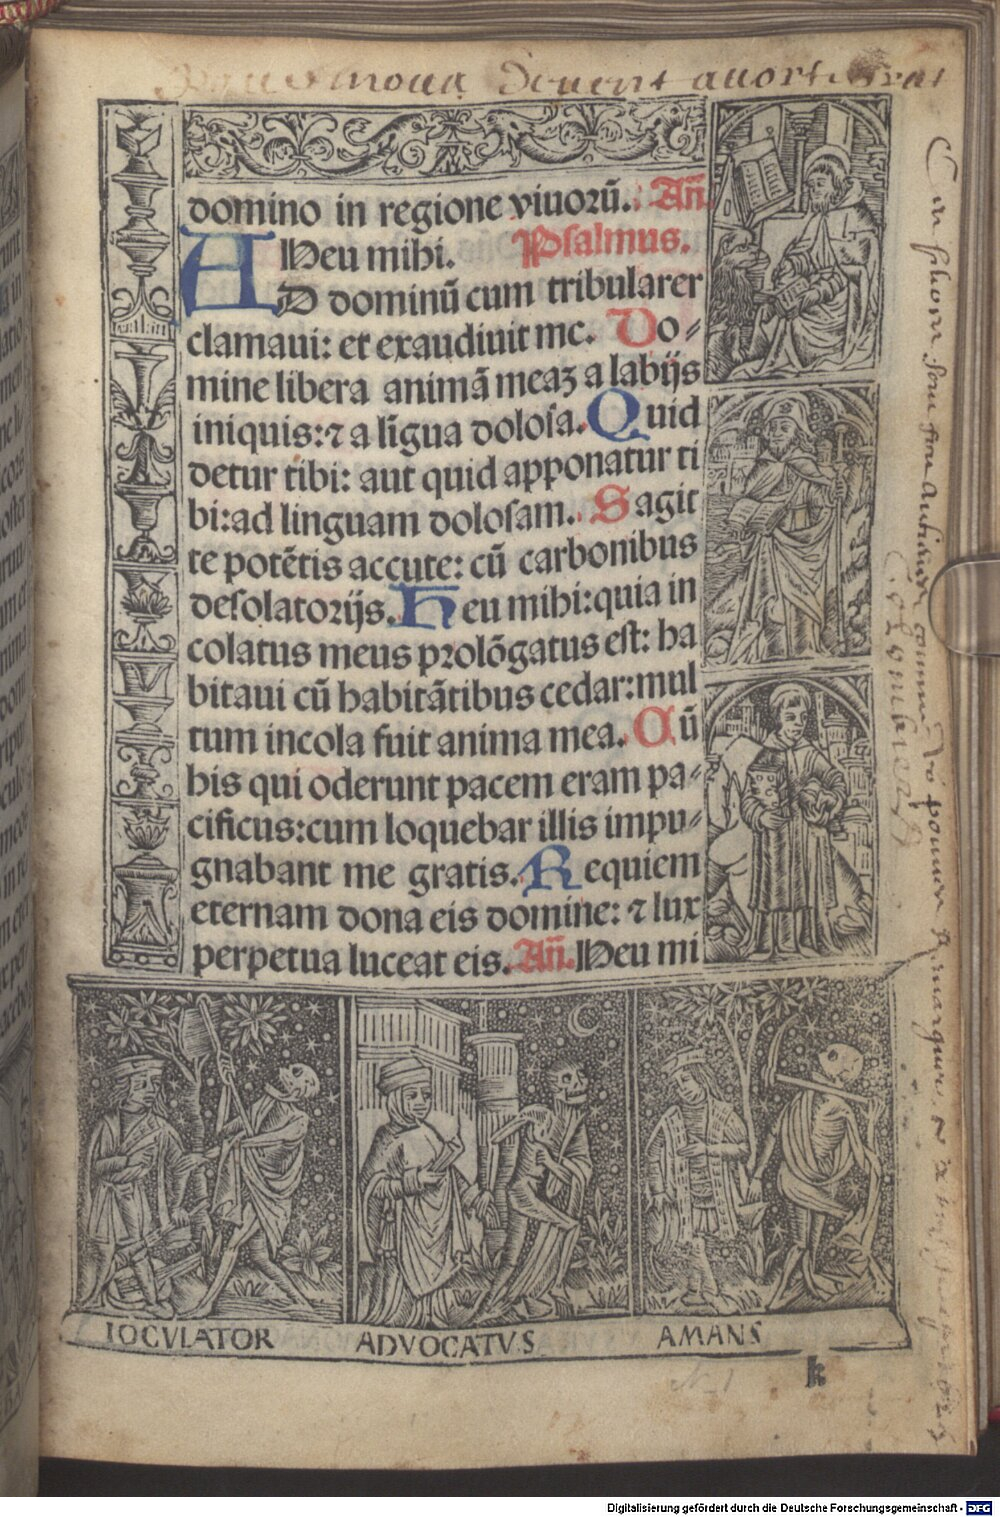 domino in regione viuorū. Añ.
Heu mihi. Psalmus.
AD dominū cum tribularer
clamaui: et exaudiuit me. Do⸗
mine libera animā meaꝫ a labijs
iniquis: ⁊ a līgua dolosa. Quid
detur tibi: aut quid apponatur ti
bi: ad linguam dolosam. Sagit
te potētis accute: cū carbonibus
desolatorijs. Heu mihi: quia in
colatus meus prolōgatus est: ha
bitaui cū habitātibus cedar: mul
tum incola fuit anima mea. Cū
his qui oderunt pacem eram pa⸗
cificus: cum loquebar illis impu⸗
gnabant me gratis. Requiem
eternam dona eis domine: ⁊ lux
perpetua luceat eis. Añ. Heu mi
IOCVLATOR ADVOCATVS AMANS
k
Digitalisierung gefördert durch die Deutsche Forschungsgemeinschaft - DFG